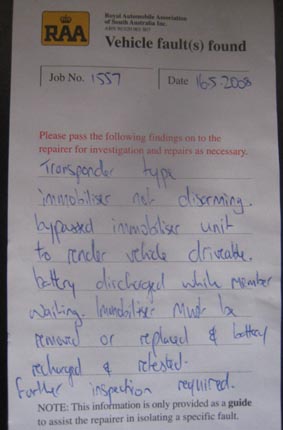 RAA
Royal Automobile Association
of South Australia Inc.
Vehicle fault(s) found
Job No. 1557
Date 16-5-2008
Please pass the following findings on to the
repairer for investigation and repairs as necessary.
Transponder type
immobiliser not disarming.
bypassed immobiliser unit
to render vehicle driveable.
battery discharged while member
waiting. Immobiliser must be
removed or replaced & battery
recharged & retested.
further inspection required.
NOTE: This information is only provided as a guide
to assist the repairer in isolating a specific fault.